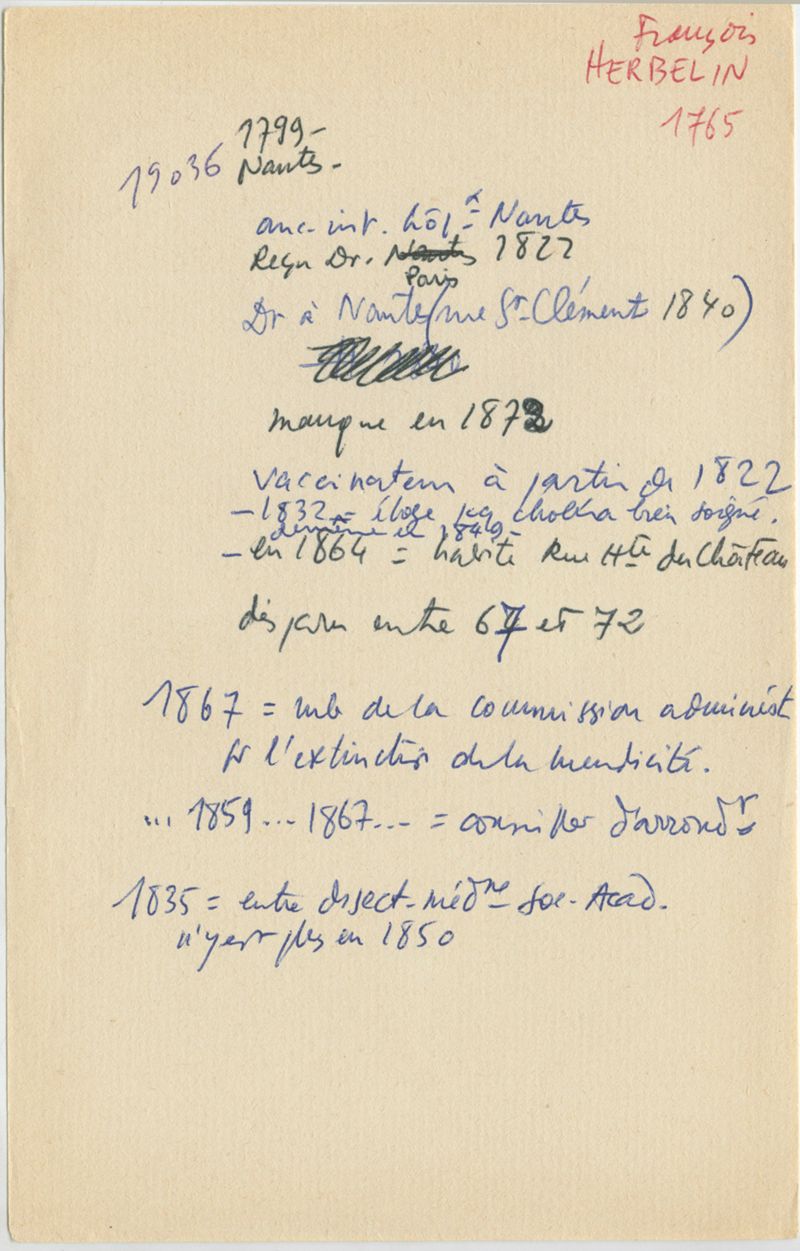 François
HERBELIN
1765
1799-
19036 Nantes-
anc. int. hôpx Nantes
Reçu Dr. Nantes 1822
Paris
Dr à Nantes (rue St-Clément 1840)
manque en 1872
vaccinateur à partir de 1822
- 1832 = éloge choléra bien soigné.
de même en 1849-
- en 1864 = habite Rue Hte du Château
disparu entre 67 et 72
1867 = mb de la commission administ
pr l'extinction de la mendicité.
... 1859 ... 1867 ... = conseiller d'arrondt
1835 = entre ds sect-médne Soc-Acad.
n'y est plus en 1850